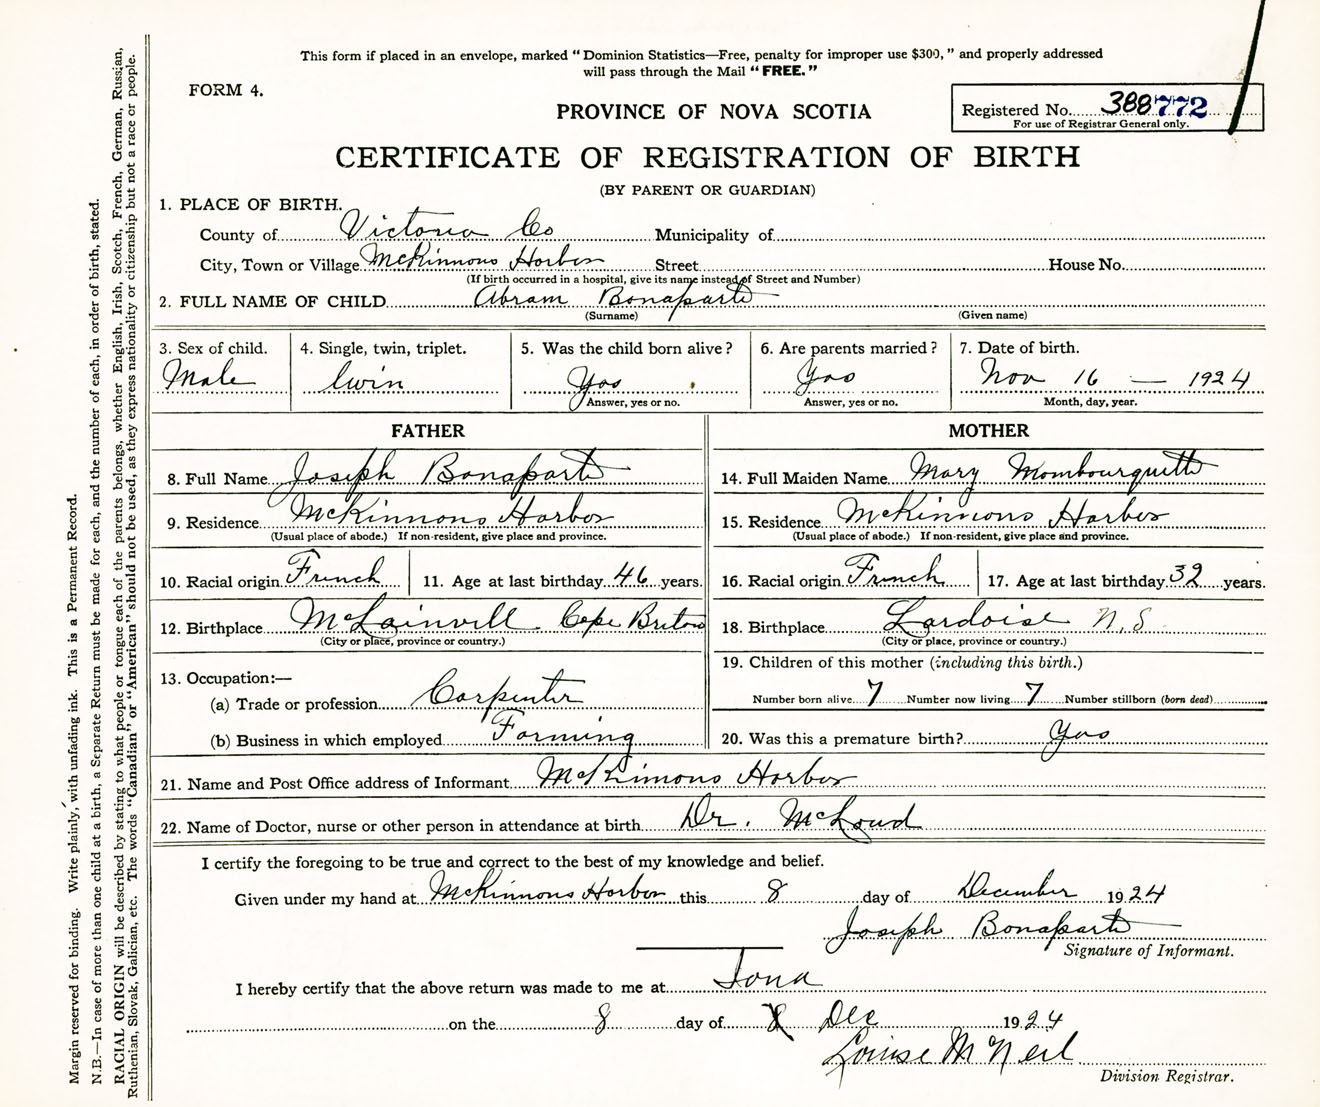 This form if placed in an envelope, marked "Dominion Statistics—Free, penalty for improper use $300," and properly addressed
will pass through the Mail "FREE."
FORM 4.
PROVINCE OF NOVA SCOTIA
Registered No. 388772
For use of Registrar General only.
CERTIFICATE OF REGISTRATION OF BIRTH
(BY PARENT OR GUARDIAN)
1. PLACE OF BIRTH.
County of Victoria Co Municipality of
City, Town or Village McKinnons Harbor Street House No.
(If birth occurred in a hospital, give its name instead of Street and Number)
2. FULL NAME OF CHILD Abram Bonaparte
(Surname) (Given name)
3. Sex of child. 4. Single, twin, triplet. 5. Was the child born alive? 6. Are parents married? 7. Date of birth.
Male twin Yes Yes Nov 16 — 1924
Answer, yes or no. Answer, yes or no. Month, day, year.
FATHER MOTHER
8. Full Name Joseph Bonaparte 14. Full Maiden Name Mary Mombourquette
9. Residence McKinnons Harbor 15. Residence McKinnons Harbor
(Usual place of abode.) If non-resident, give place and province. (Usual place of abode.) If non-resident, give place and province.
10. Racial origin French 11. Age at last birthday 46 years. 16. Racial origin French 17. Age at last birthday 32 years.
12. Birthplace McLainvill Cape Breton 18. Birthplace Lardoise N.S
(City or place, province or country.) (City or place, province or country.)
19. Children of this mother (including this birth.)
13. Occupation:—
(a) Trade or profession Carpenter Number born alive 7 Number now living 7 Number stillborn (born dead)
(b) Business in which employed Farming 20. Was this a premature birth? Yes
21. Name and Post Office address of Informant McKinnons Harbor
22. Name of Doctor, nurse or other person in attendance at birth Dr. McLoud
I certify the foregoing to be true and correct to the best of my knowledge and belief.
Given under my hand at McKinnons Harbor this 8 day of December 1924
Joseph Bonaparte
Signature of Informant.
I hereby certify that the above return was made to me at Iona
on the 8 day of Dec 1924
Louise McNeil
Division Registrar.
Margin reserved for binding. Write plainly, with unfading ink. This is a Permanent Record.
N.B.—In case of more than one child at a birth, a Separate Return must be made for each, and the number of each, in order of birth, stated.
RACIAL ORIGIN will be described by stating to what people or tongue each of the parents belongs, whether English, Irish, Scotch, French, German, Russian,
Ruthenian, Slovak, Galician, etc. The words "Canadian" or "American" should not be used, as they express nationality or citizenship but not a race or people.